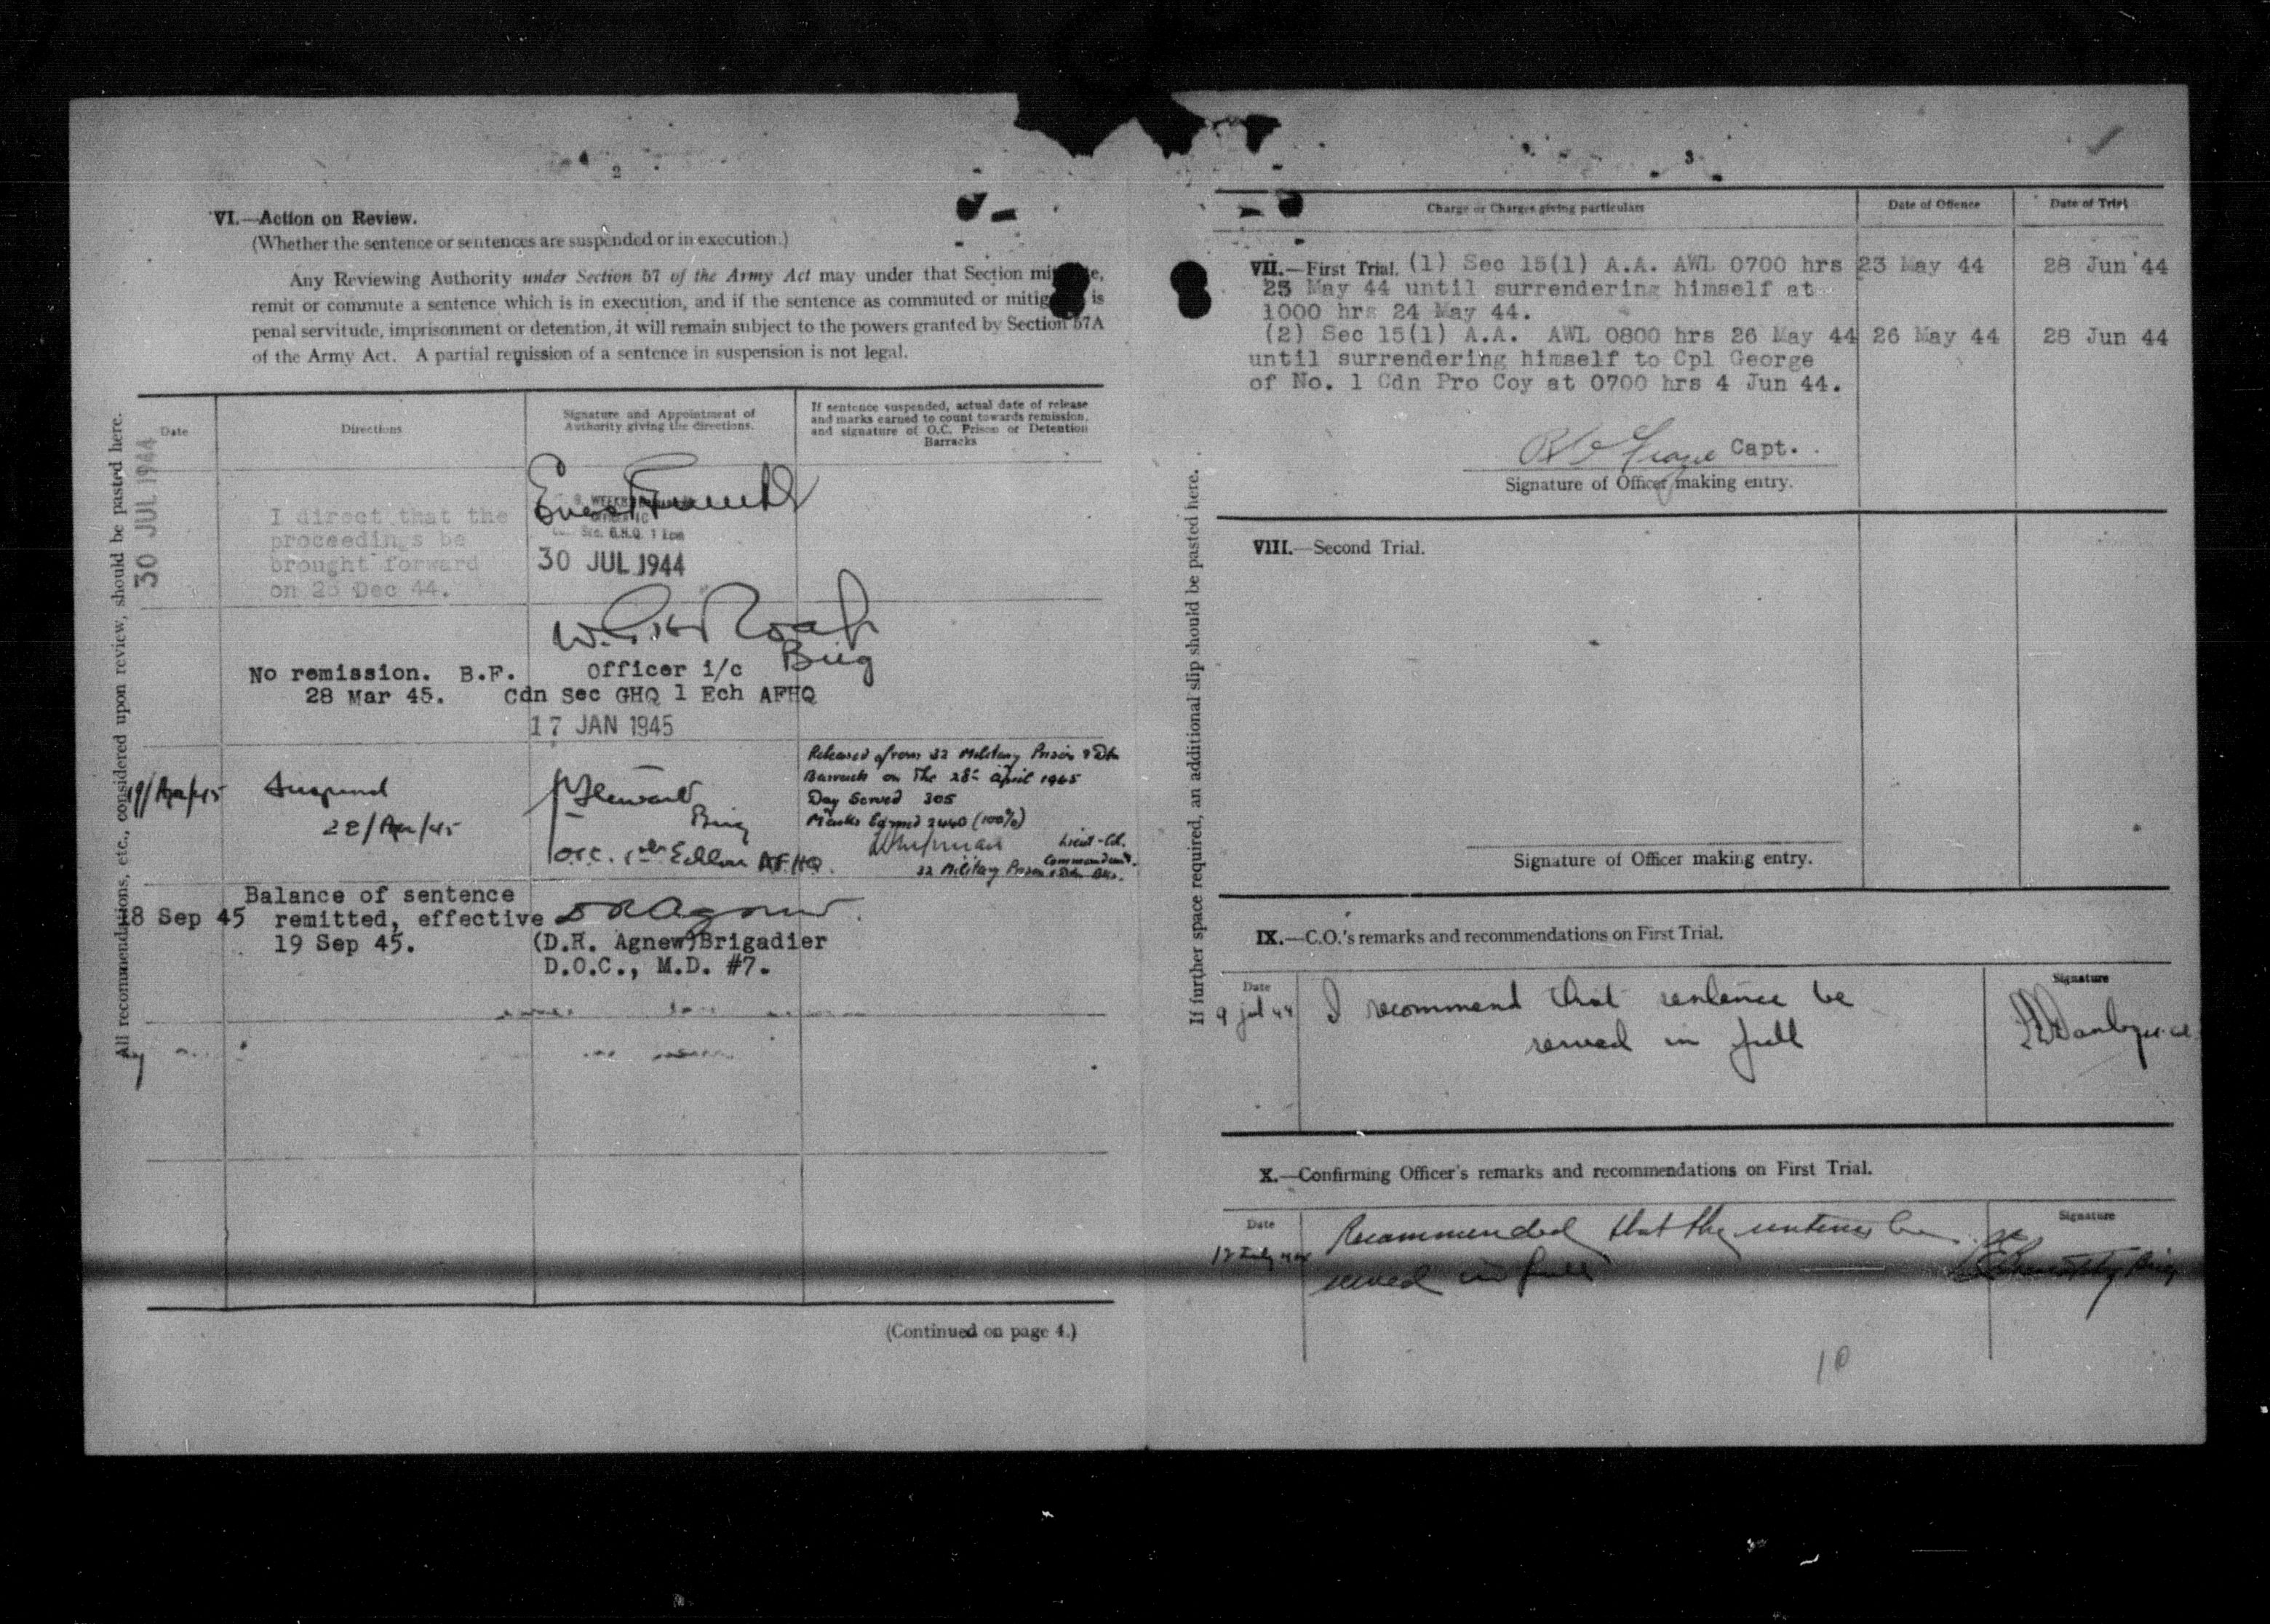 2
VI.—Action on Review.
(Whether the sentence or sentences are suspended or in execution.)
Any Reviewing Authority under Section 57 of the Army Act may under that Section
remit or commute a sentence which is in execution, and if the sentence as commuted or is
penal servitude, imprisonment or detention, it will remain subject to the powers granted by Section 57A
of the Army Act. A partial remission of a sentence in suspension is not legal.
All recommendations, etc., considered upon review, should be pasted here.
Date
Directions
Signature and Appointment of
Authority giving the directions.
If sentence suspended, actual date of release
and marks earned to count towards remission,
and signature of O.C. Prison or Detention
Barracks
30 JUL 1944
I direct that the
proceedings be
brought forward
on Dec 44.
30 JUL 1944
No remission. B.F.
28 Mar 45.
Brig
Officer i/c
Cdn Sec GHQ 1 Ech AFHQ
17 JAN 1945
19/Apr/45
Suspend
28/Apr/45
Brig
AFHQ.
Released from 32 Military Prison & Detn
Barracks on the 28th April 1945
Day Served 305
Marks Earned 2440 (100%)
Lieut-Col.
Commandant.
32 Military Prison & Detn Bks.
18 Sep 45
Balance of sentence
remitted, effective
19 Sep 45.
(D.R. Agnew)Brigadier
D.O.C., M.D. #7.
(Continued on page 4.)
3
Charge or Charges giving particulars
Date of Offence
Date of Trial
VII.—First Trial. (1) Sec 15(1) A.A. AWL 0700 hrs 23 May 44 28 Jun 44
23 May 44 until surrendering himself at
1000 hrs 24 May 44.
(2) Sec 15(1) A.A. AWL 0800 hrs 26 May 44 26 May 44 28 Jun 44
until surrendering himself to Cpl George
of No. 1 Cdn Pro Coy at 0700 hrs 4 Jun 44.
Capt.
Signature of Officer making entry.
If further space required, an additional slip should be pasted here.
VIII.—Second Trial.
Signature of Officer making entry.
IX.—C.O.'s remarks and recommendations on First Trial.
Date
Signature
9 Jul 44
I recommend that sentence be
served in full
X.—Confirming Officer's remarks and recommendations on First Trial.
Date
Signature
12 July 44
Recommended that the sentence be
served in full
Brig
10